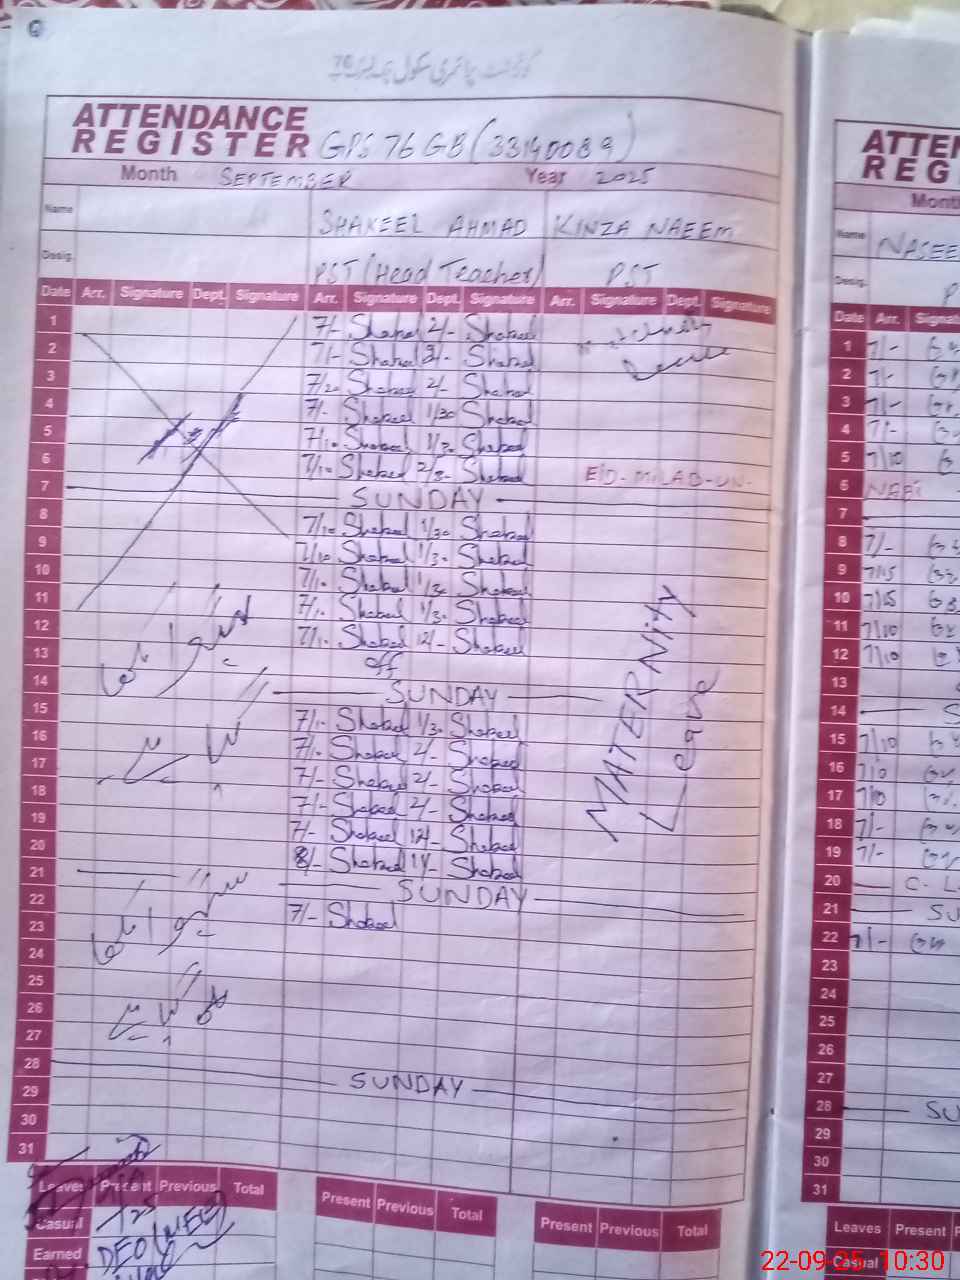 گورنمنٹ پرائمری سکول چک نمبر 76
ATTENDANCE
REGISTER GPS 76 GB (33140089)
Month SEPTEMBER Year 2025
Name SHAKEEL AHMAD KINZA NAEEM
Desig. PST (Head Teacher) PST
Date Arr. Signature Dept. Signature Arr. Signature Dept. Signature Arr. Signature Dept. Signature
1 7/- Shakeel 2/- Shakeel
2 7/- Shakeel 2/- Shakeel
3 7/10 Shakeel 2/- Shakeel
4 7/- Shakeel 1/30 Shakeel
5 7/10 Shakeel 1/30 Shakeel
6 7/10 Shakeel Shakeel EID-MILAD-UN-
7 SUNDAY
8 7/10 Shakeel 1/30 Shakeel
9 7/10 Shakeel 1/30 Shakeel
10 7/10 Shakeel 1/30 Shakeel
11 7/10 Shakeel 1/30 Shakeel
12 7/10 Shakeel 12/- Shakeel
13 off
14 SUNDAY
MATERNITY
Leave
15 7/10 Shakeel 1/30 Shakeel
16 7/10 Shakeel 2/- Shakeel
17 7/- Shakeel 2/- Shakeel
18 7/- Shakeel 2/- Shakeel
19 7/- Shakeel 12/- Shakeel
20 8/- Shakeel Shakeel
21 SUNDAY
22 7/- Shakeel
23
24
25
26
27
28 SUNDAY
29
30
31
Leaves Present Previous Total Present Previous Total Present Previous Total
Casual
Earned DEO (MEE)
ATTEN
REG
Month
Name NASEE
Desig. P
Date Arr. Signat
1 7/-
2 7/-
3 7/-
4 7/-
5 7/10
6 NABI
7
8 7/-
9 7/15
10 7/15
11 7/10
12 7/10
13
14 S
15 7/10
16 7/10
17 7/10
18 7/-
19 7/-
20 C. L
21 SU
22 7/-
23
24
25
26
27
28 SU
29
30
31
Leaves Present P
Casual
22-09-25 10:30